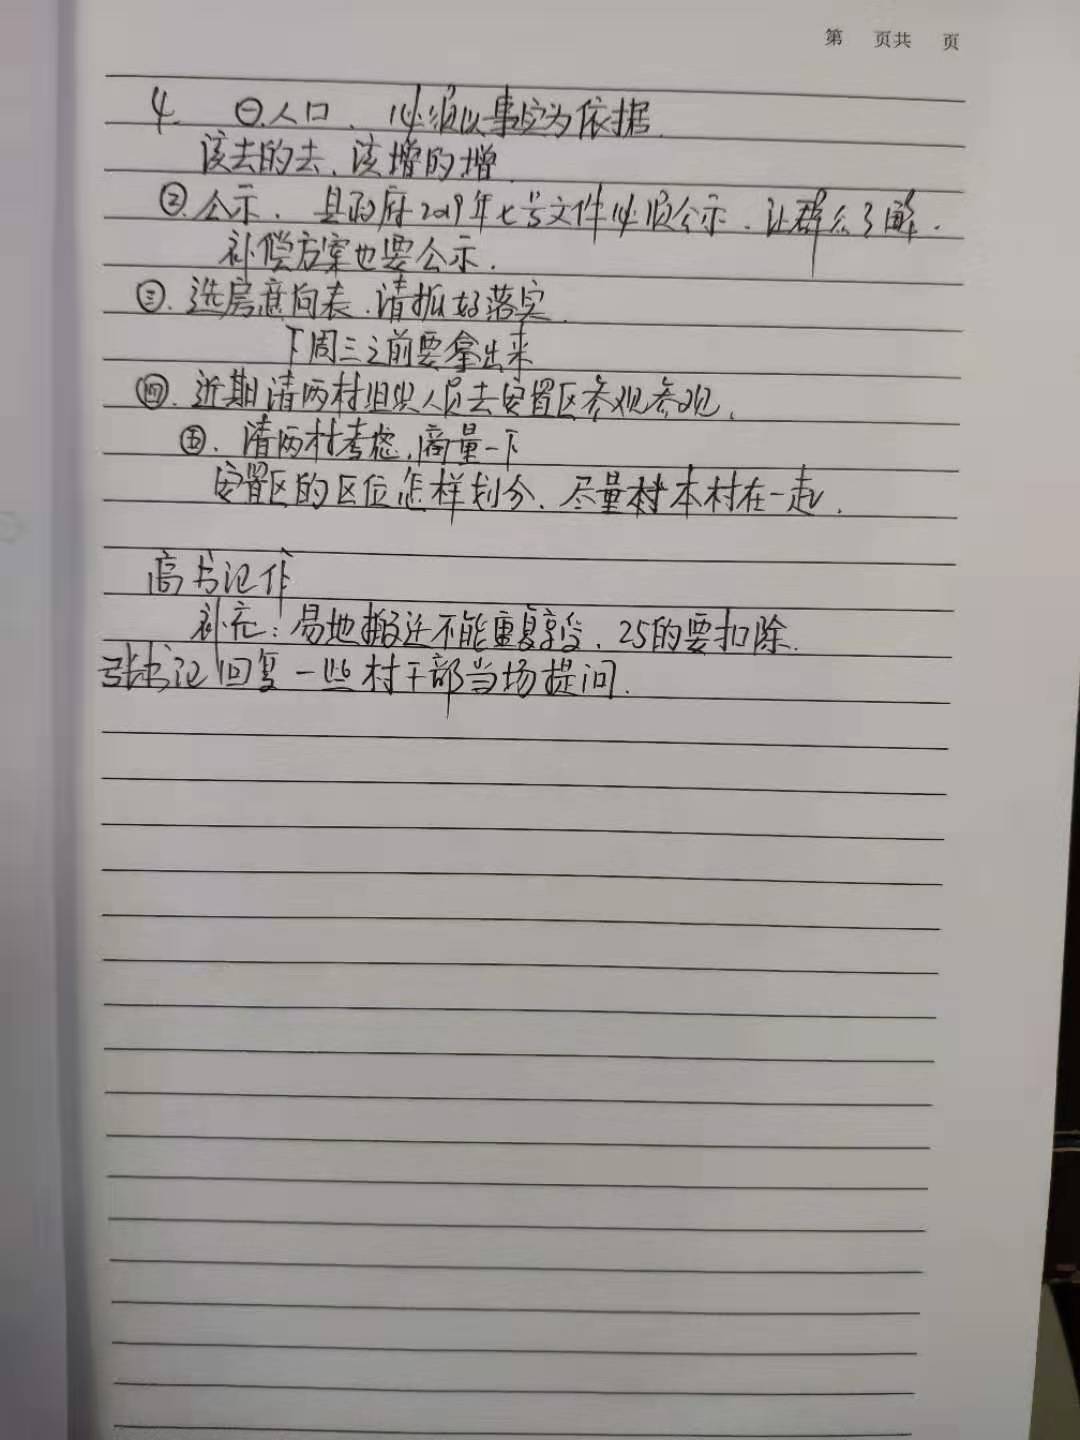 第 页共 页
4. ㊀.人口、必须以事实为依据.
该去的去、该增的增.
②.公示、县政府2019年七号文件必须公示、让群众了解.
补偿方案也要公示.
㊂.选房意向表、请抓好落实.
下周三之前要拿出来
㊃.近期请两村组织人员去安置区参观参观.
㊄.请两村考虑,商量一下
安置区的区位怎样划分、尽量本村在一起.
高书记作
补充:易地搬迁不能重复享受、25的要扣除.
张书记回复一些村干部当场提问.